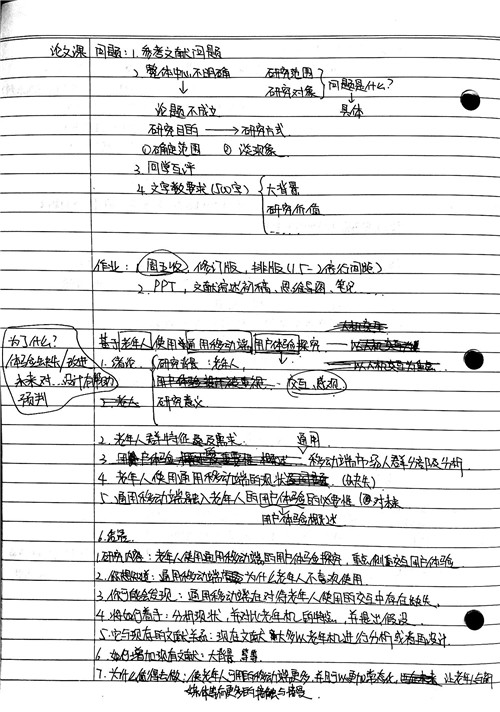 论文课 问题：1. 参考文献问题
2. 整体中心不明确 研究范围
研究对象 问题是什么？
论题不成立 具体
研究目的 → 研究方式
①确定范围 ② 谈现象
3. 同学互评
4. 文字数要求（500字） 大背景
研究价值
……
作业：1. 周五收，修订版，排版（1.5-2倍行间距）
2. PPT，文献综述初稿、思维导图、笔记……
为了什么？
未来对
预判
基于老年人使用 通用移动端 用户体验探究
1. 绪论 研究背景：老年人，
交互，感观
研究意义
2. 老年人群特征及需求 通用
3. 移动端市场人群分布及分析
4. 老年人使用通用移动端的现状（缺失）
5. 通用移动端融入老年人的用户体验的必要性
用户体验概述
6. 结论
1. 研究内容：老年人使用通用移动端的用户体验探究，重点侧重交互用户体验
2. 通用移动端 为什么老年人不喜欢使用
3. 你可能会发现：通用移动端在对待老年人使用的交互中存在缺失
4. 将如何着手：分析现状，并对比老年机 的特点，并提出假设
5. 它与现在的文献关系：现在文献 大多以老年机进行分析或者再设计
6. 如何增加现有文献：大背景
7. 为什么值得去做：使老年人 移动端更多， 让老年人与
更多的接触与接受